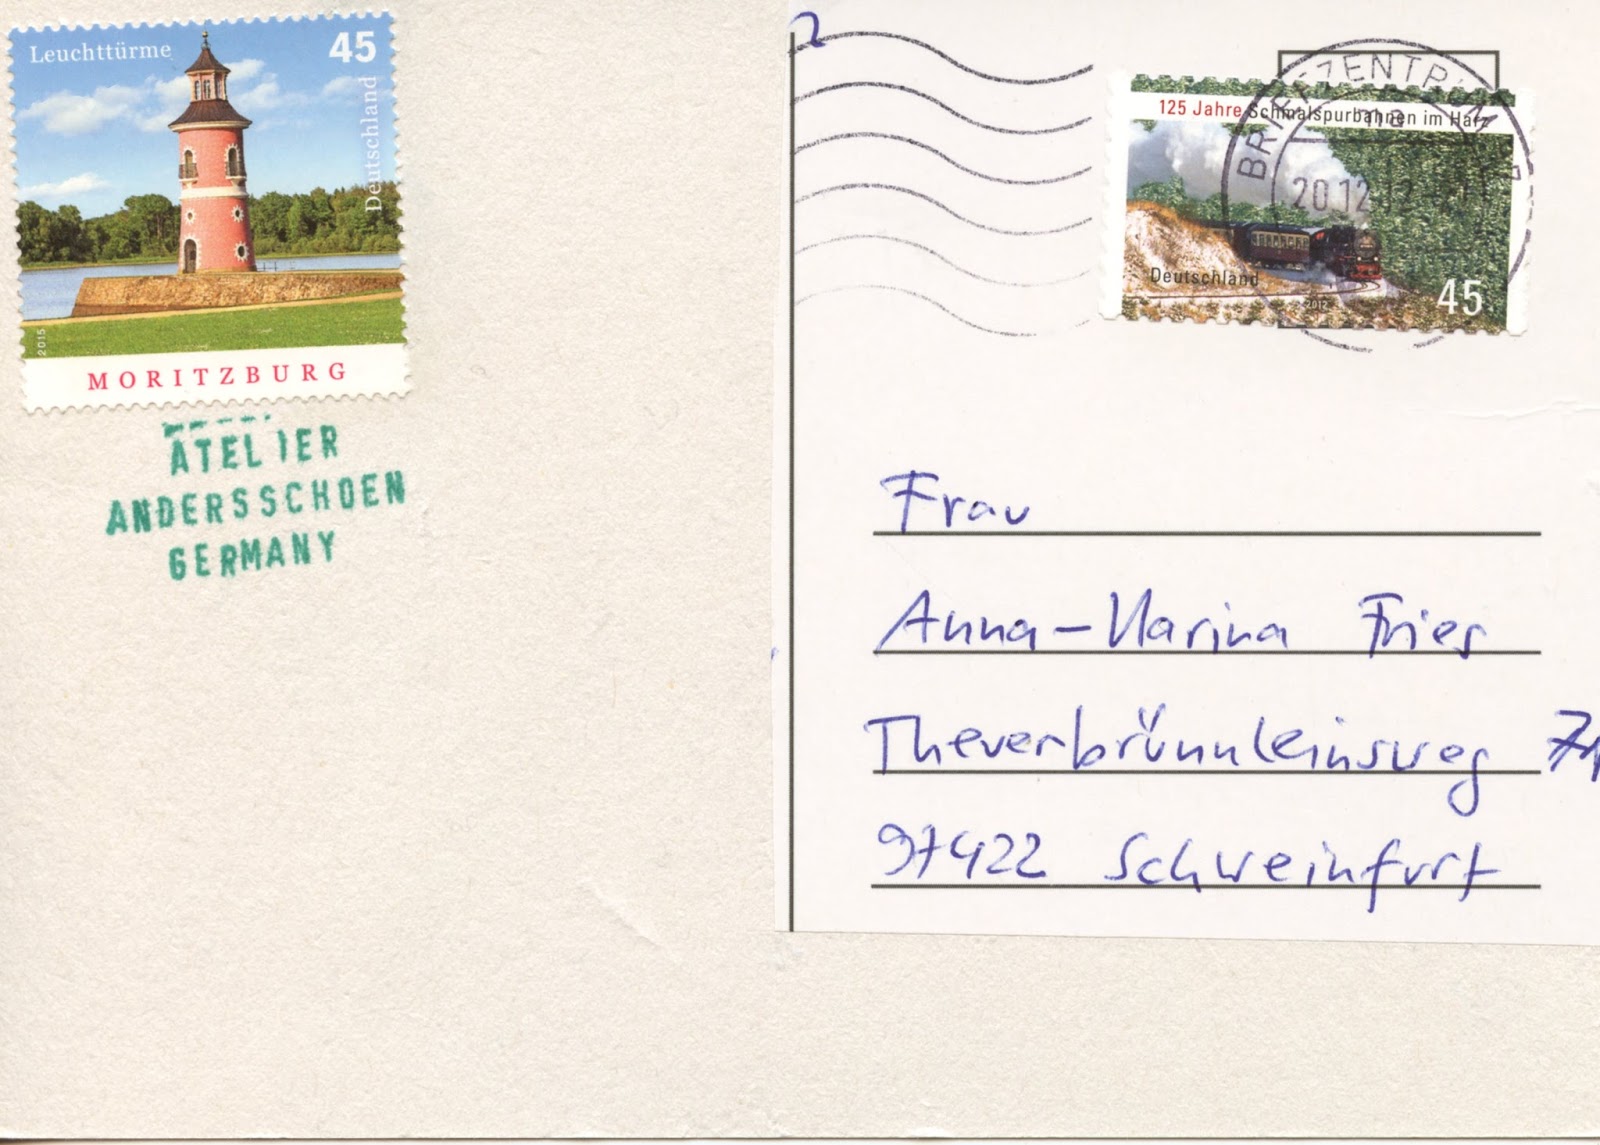 Leuchttürme 45
Deutschland
2015
MORITZBURG
ATELIER
ANDERSSCHOEN
GERMANY
BRIEFZENTRUM
20.12.12
125 Jahre Schmalspurbahnen im Harz
Deutschland
2012
45
Frau
Anna-Marina Fries
Theuerbrünnleinsweg
97422 Schweinfurt